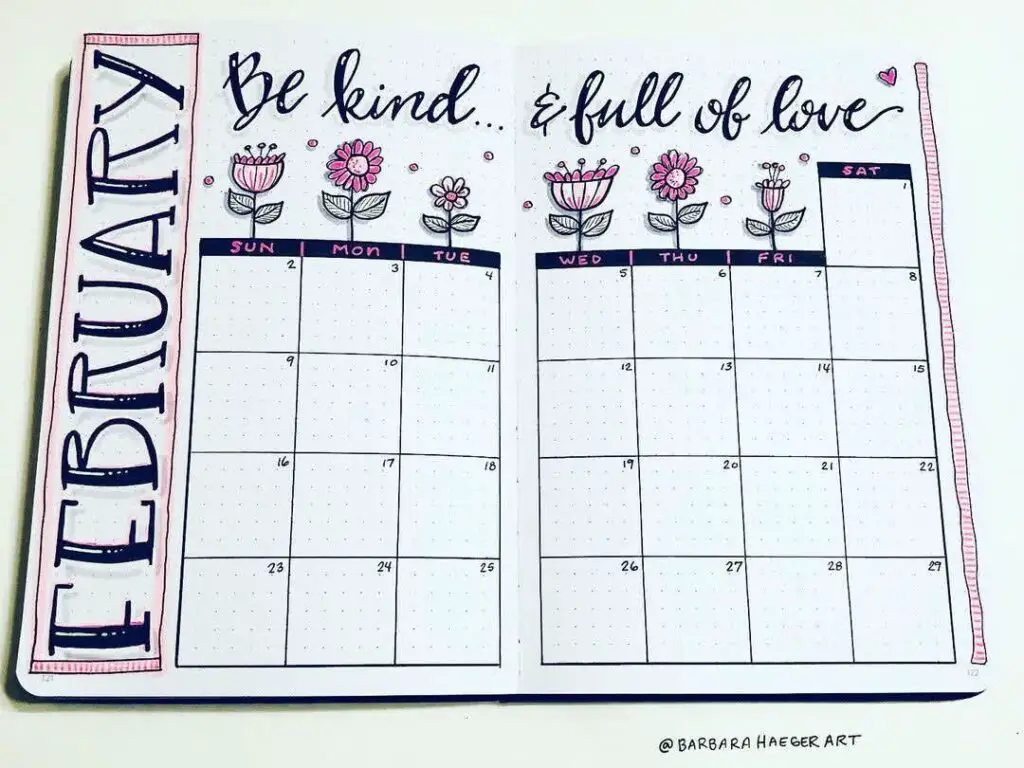 FEBRUARY
Be kind... & full of love
SAT
1
SUN | MON | TUE WED | THU | FRI
2 3 4 5 6 7 8
9 10 11 12 13 14 15
16 17 18 19 20 21 22
23 24 25 26 27 28 29
121 122
@BARBARAHAEGERART